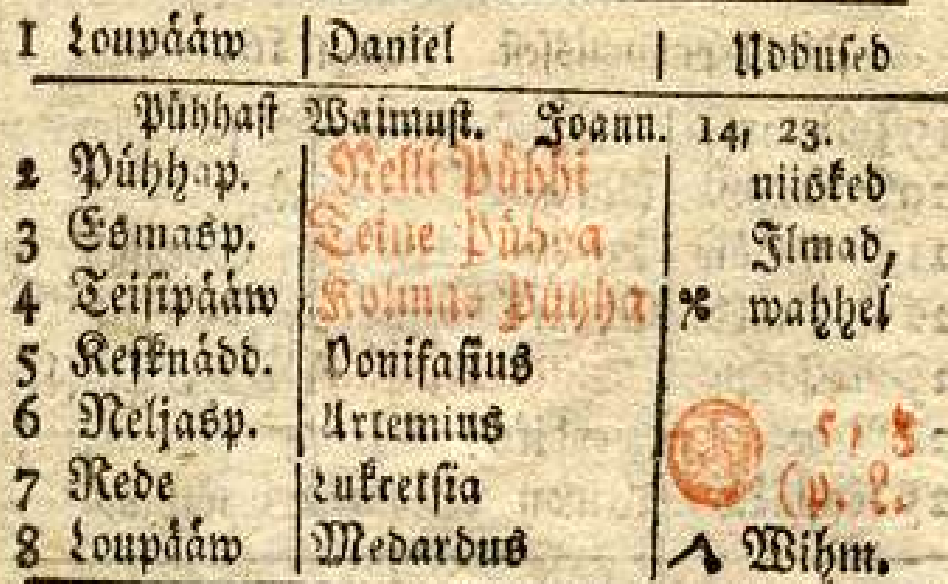 1 Loupääw Daniel Uddused
Pühhast Waimust. Joann. 14, 23.
2 Pühhap. Nelli Pühhi niisked
3 Esmasp. Teine Pühha Ilmad,
4 Teisipääw Kolmas Pühha wahhel
5 Kesknädd. Bonifasius
6 Neljasp. Artemius
7 Rede Lukretsia (p. L.
8 Loupääw Medardus Wihm.